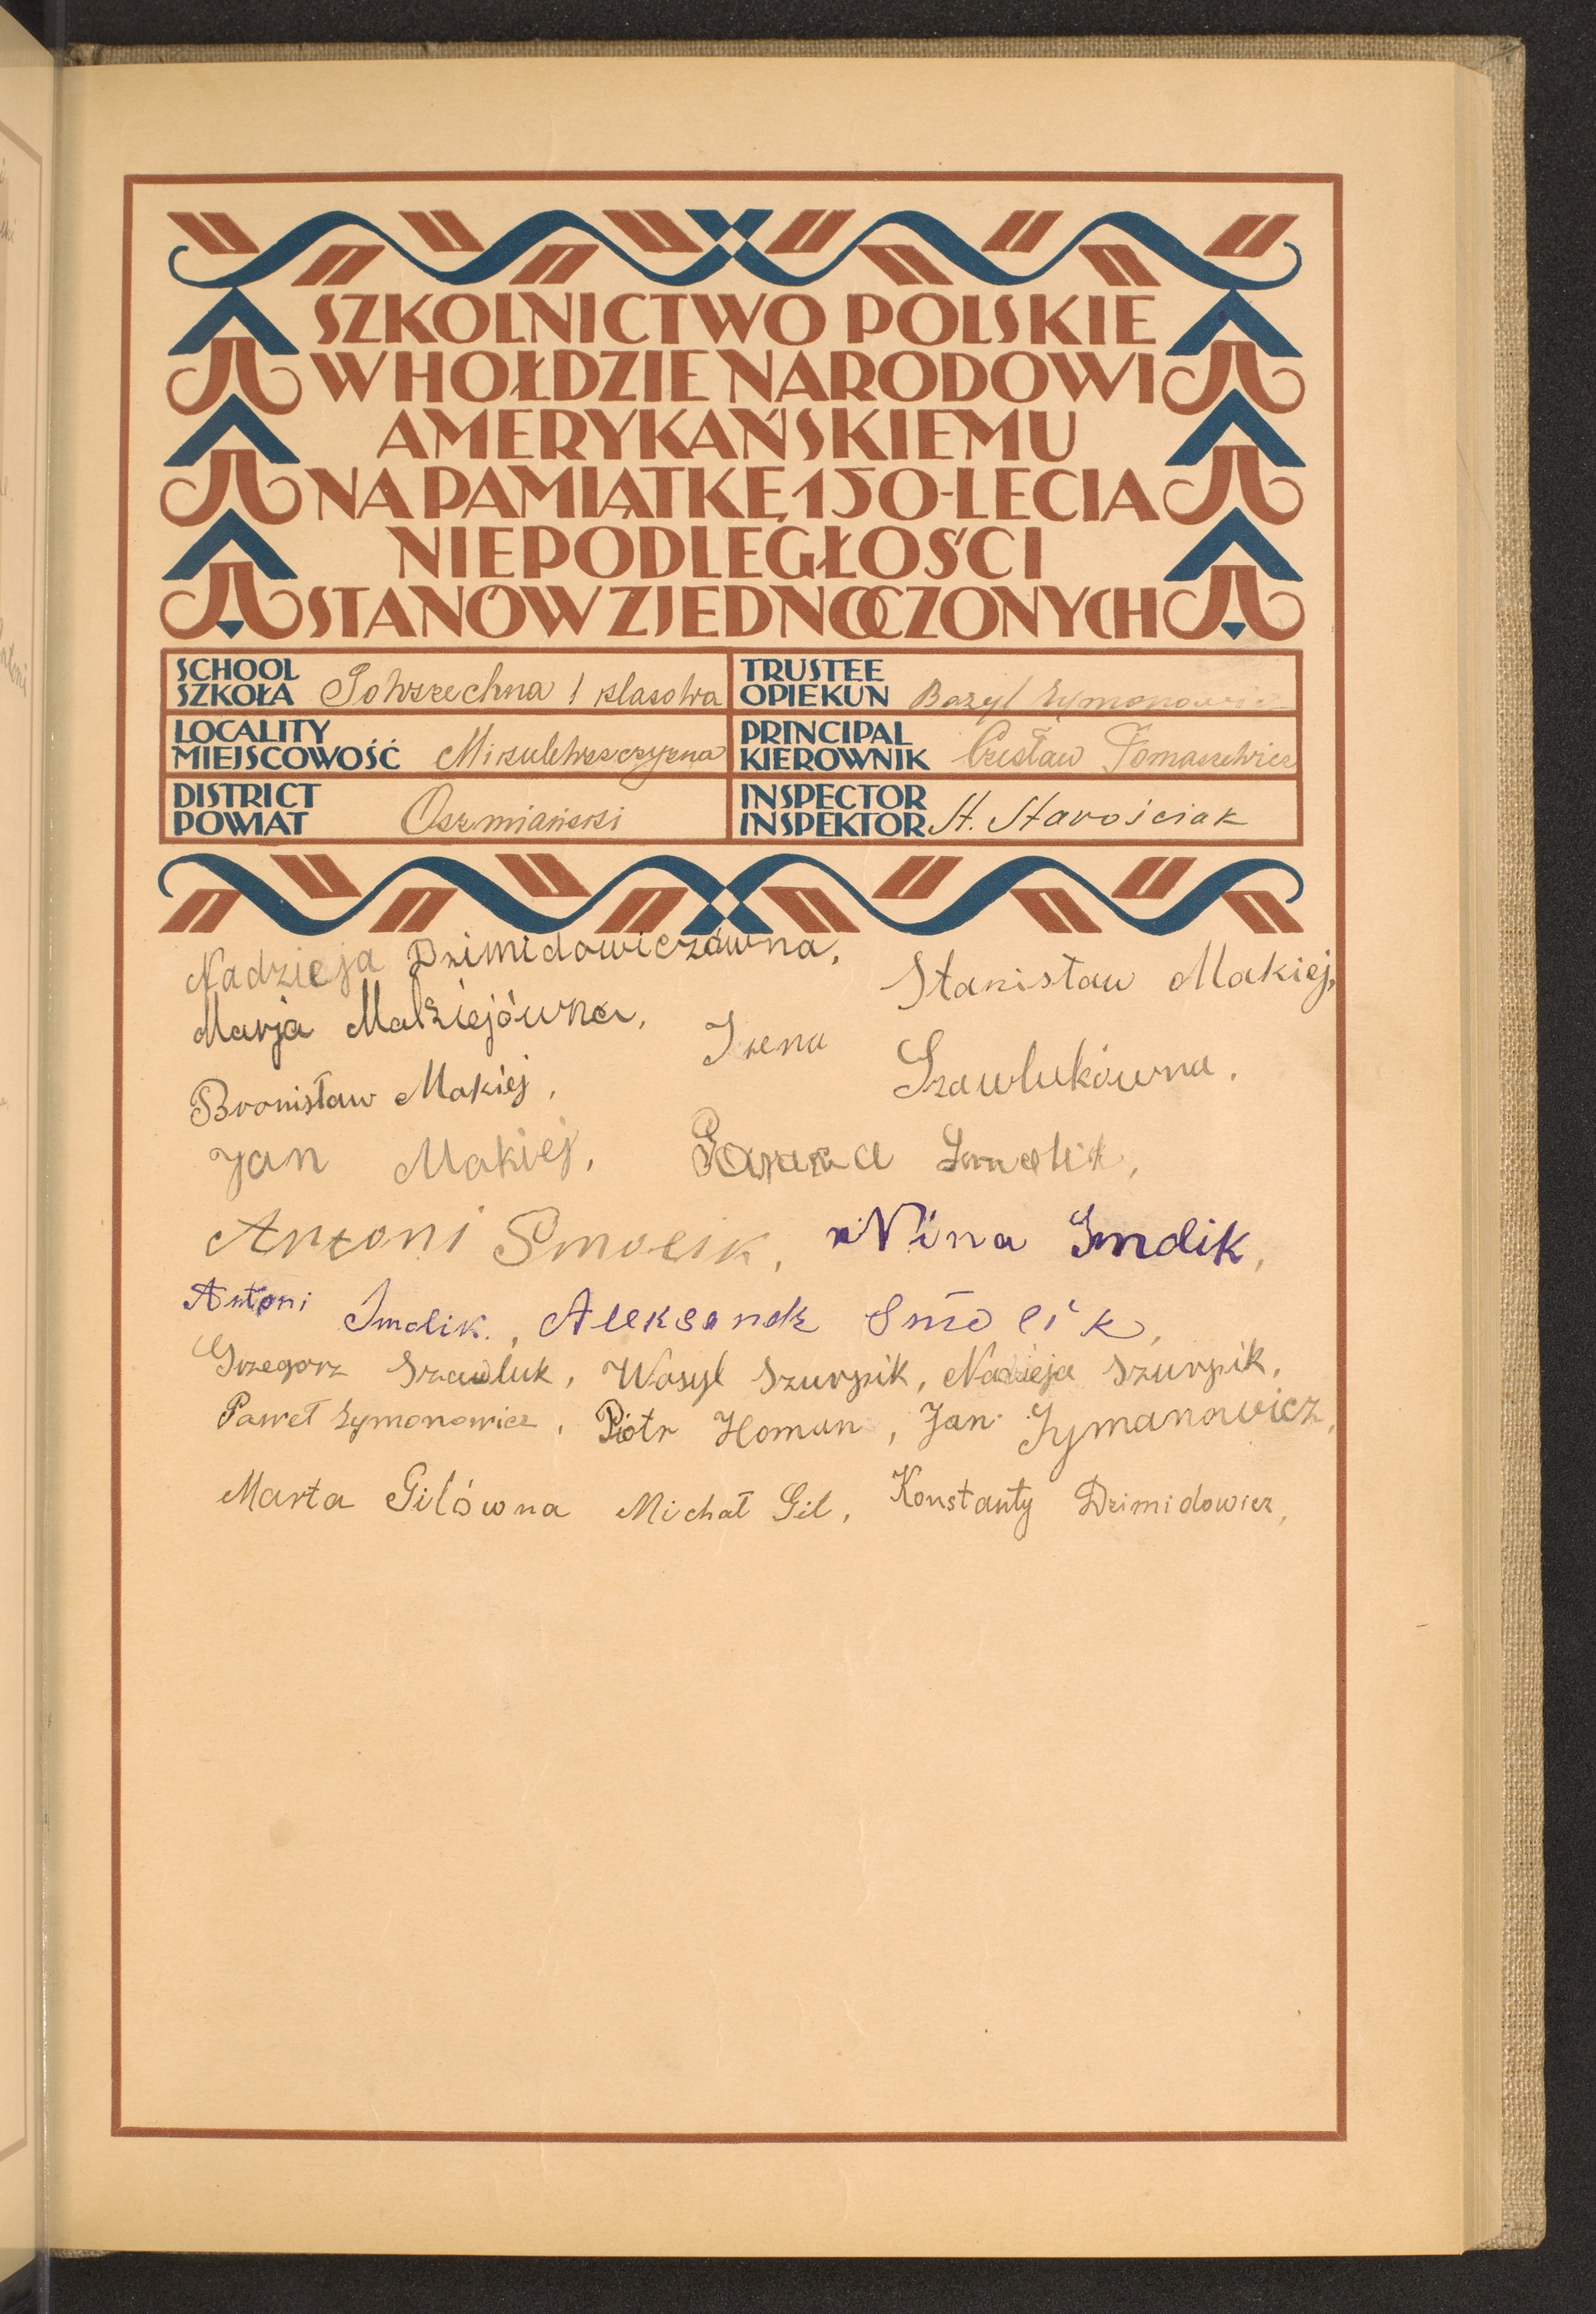 SZKOLNICTWO POLSKIE
W HOŁDZIE NARODOWI
AMERYKAŃSKIEMU
NA PAMIĄTKĘ 150-LECIA
NIEPODLEGŁOŚCI
STANÓW ZJEDNOCZONYCH
SCHOOL
SZKOŁA Powszechna 1 klasowa
TRUSTEE
OPIEKUN Bazyl Szymonowicz
LOCALITY
MIEJSCOWOŚĆ Mikulewszczyzna
PRINCIPAL
KIEROWNIK Czesław Tomaszewicz
DISTRICT
POWIAT Oszmiański
INSPECTOR
INSPEKTOR St. Starościak
Nadzieja Dzimidowiczówna, Stanisław Makiej,
Marja Makiejówna, Irena Szawlukówna,
Bronisław Makiej,
Jan Makiej, Smolik,
Antoni Smolik, Nina Smolik,
Antoni Smolik, Aleksandr Smolik,
Grzegorz Szawluk, Wasyl Szurpik, Nadzieja Szurpik,
Paweł Szymonowicz, Piotr Homan, Jan Szymanowicz,
Marta Gilówna Michał Gil, Konstanty Dzimidowicz,